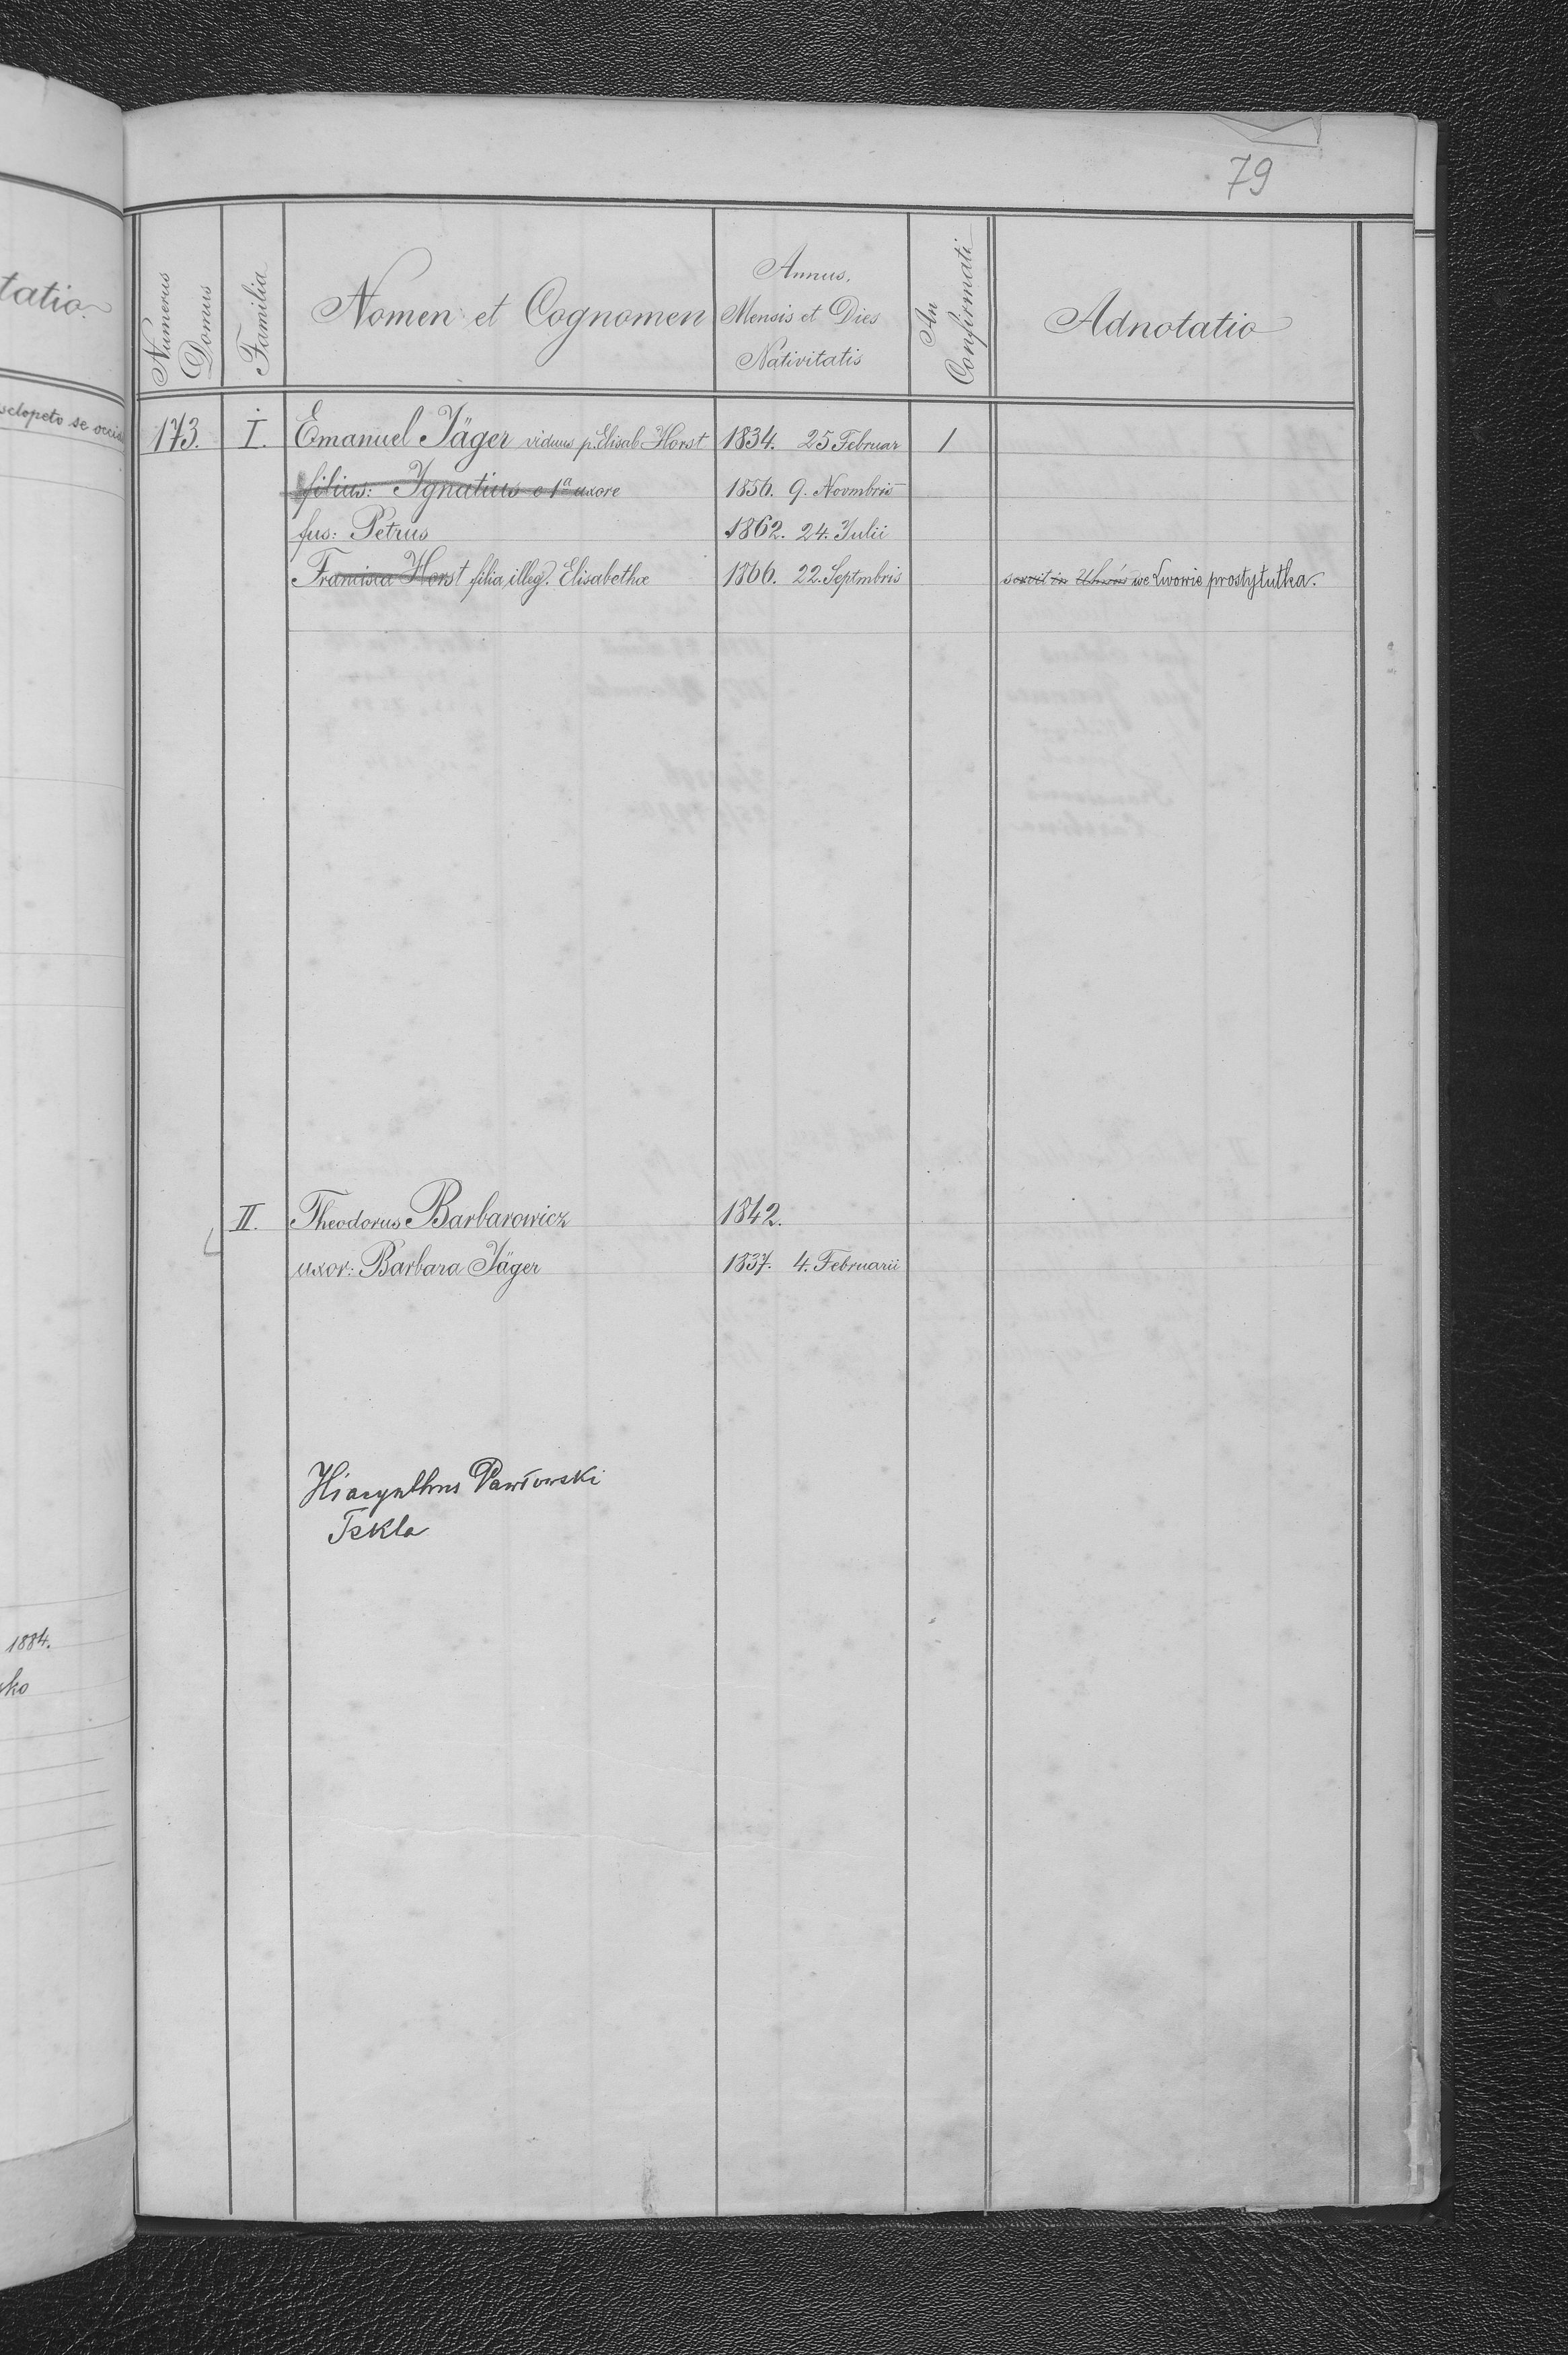 79
tatio.
Numerus Domus
Familia
Nomen et Cognomen
Annus,
Mensis et Dies
Nativitatis
An Confirmati
Adnotatio
sclopeto se occis
173. I. Emanuel Jäger viduus p. Elisab Horst 1834. 25 Februar 1
filius: Ignatius e 1a uxore 1856. 9. Novmbris
fus: Petrus 1862. 24. Julii
Francisca Horst filia illeg. Elisabethæ 1866. 22. Septmbris servit in we Lwowie prostytutka.
II. Theodorus Barbarowicz 1842.
uxor: Barbara Jäger 1837. 4. Februarii
Hiacynthus Pawłowski
Tekla
1884.
sko